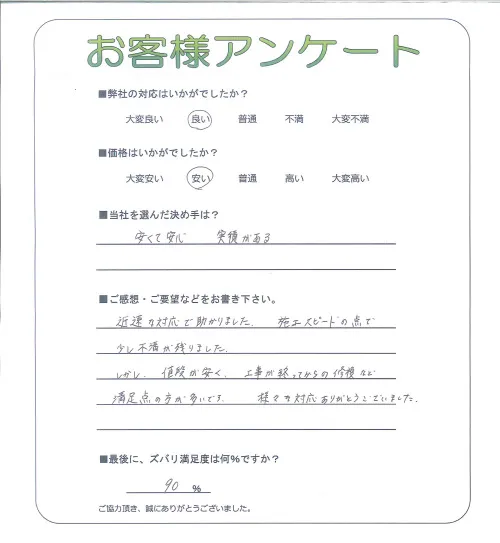 お客様アンケート
■弊社の対応はいかがでしたか？
大変良い 良い 普通 不満 大変不満
■価格はいかがでしたか？
大変安い 安い 普通 高い 大変高い
■当社を選んだ決め手は？
安くて安心 実績がある
■ご感想・ご要望などをお書き下さい。
迅速な対応で助かりました. 施工スピードの点で
少し不満が残りました.
しかし、値段が安く、工事が終ってからの修繕など
満足点の方が多いです. 様々な対応ありがとうございました.
■最後に、ズバリ満足度は何％ですか？
90 %
ご協力頂き、誠にありがとうございました。